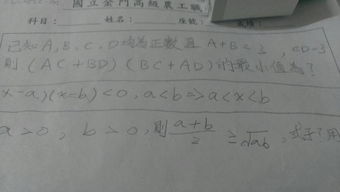 國立金門高級農工職
科目： 姓名： 座號：
已知A,B,C,D均為正數且 A+B=2, CD=3
則(AC+BD)(BC+AD)的最小值為?
x-a)(x-b)<0, a<b => a<x<b
a>0, b>0, 則 a+b/2 ≥ √ab,